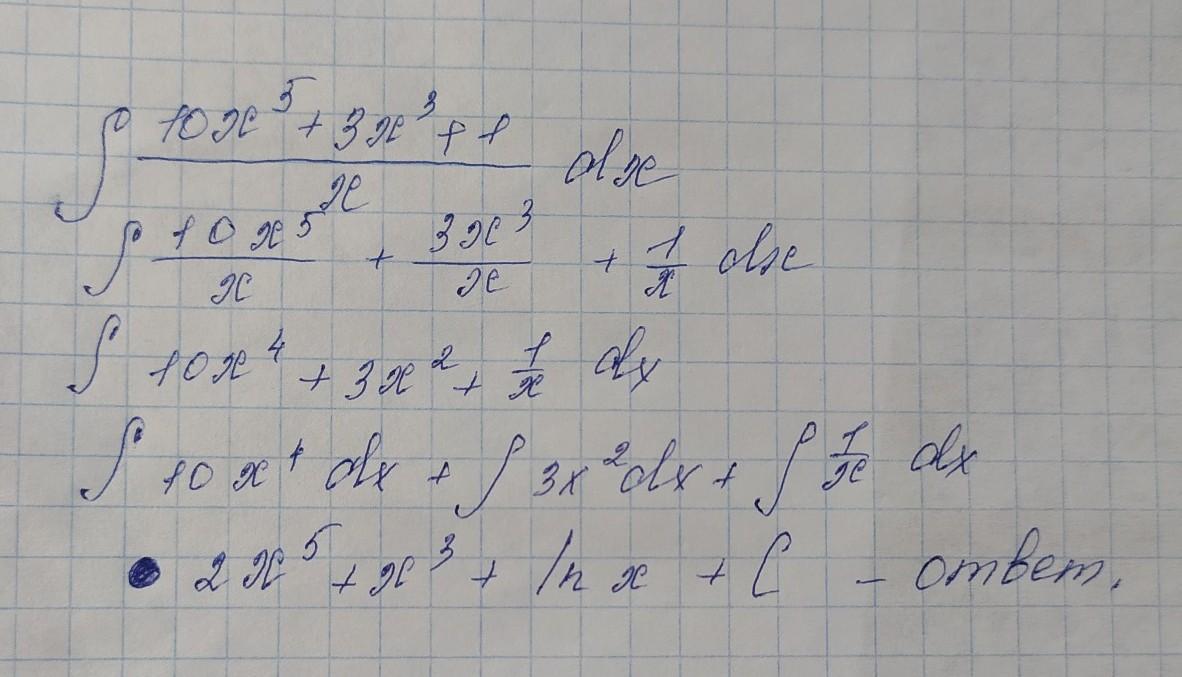 ∫ (10x^5 + 3x^3 + 1)/x dx
∫ 10x^5/x + 3x^3/x + 1/x dx
∫ 10x^4 + 3x^2 + 1/x dx
∫ 10x^4 dx + ∫ 3x^2 dx + ∫ 1/x dx
2x^5 + x^3 + ln x + C – ответ.